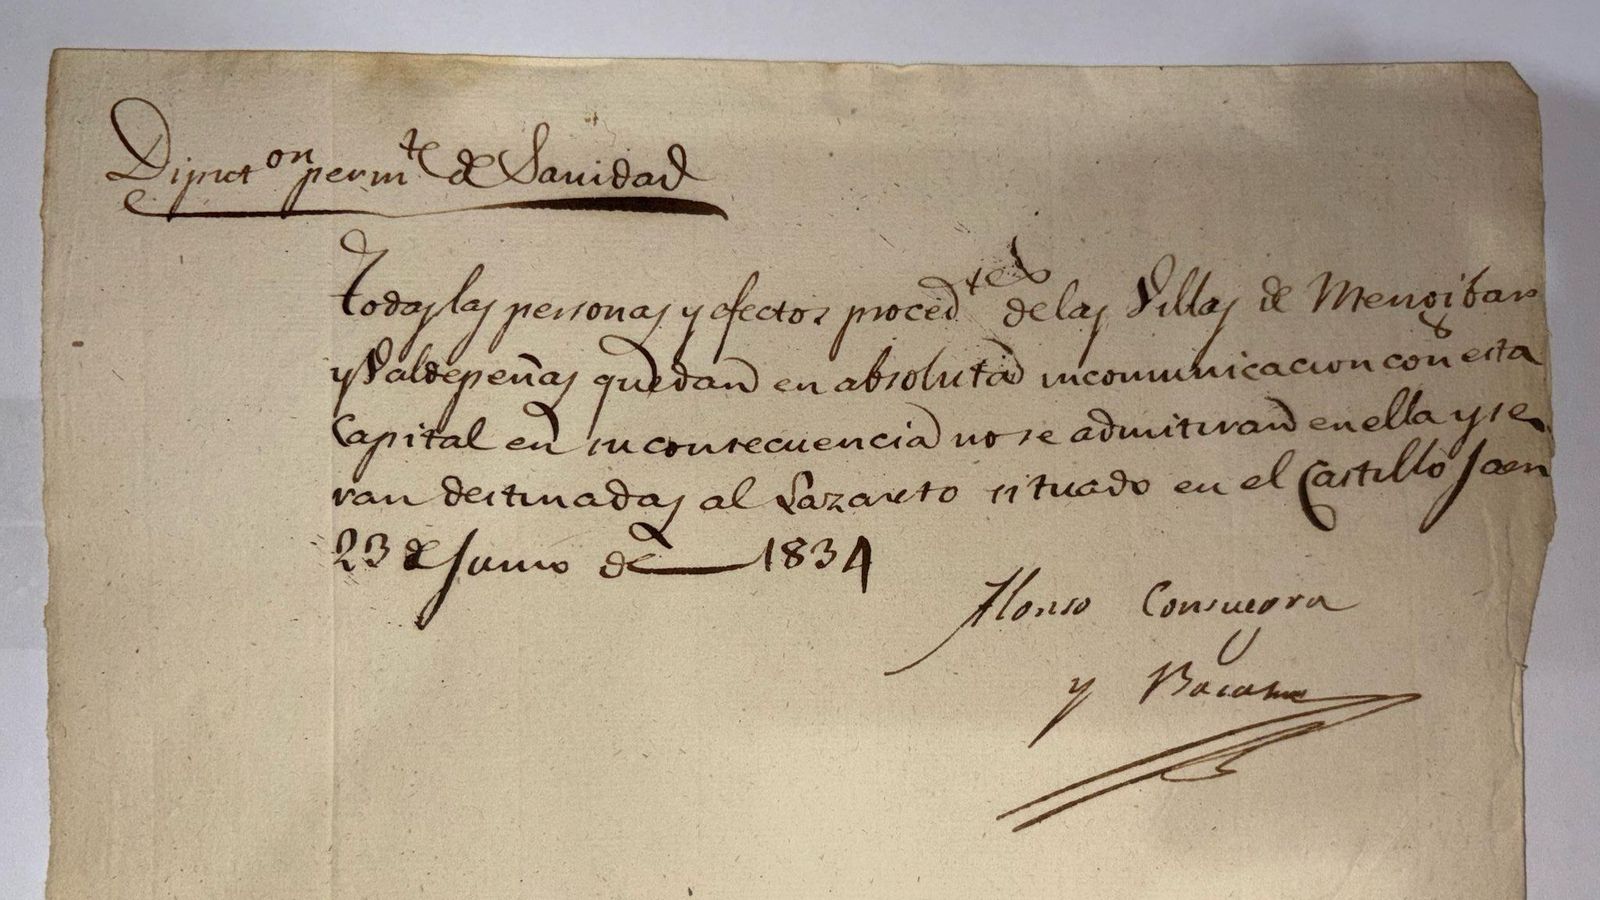 Diputon permte de Sanidad
Todas las personas y efectos procedtes de las Villas de Mengibar
y Valdepeñas quedan en absoluta incomunicacion con esta
Capital en su consecuencia no se admitiran en ella y se
ran destinadas al Lazareto situado en el Castillo Jaen
23 de Junio de 1834
Alonso Consuegra
y